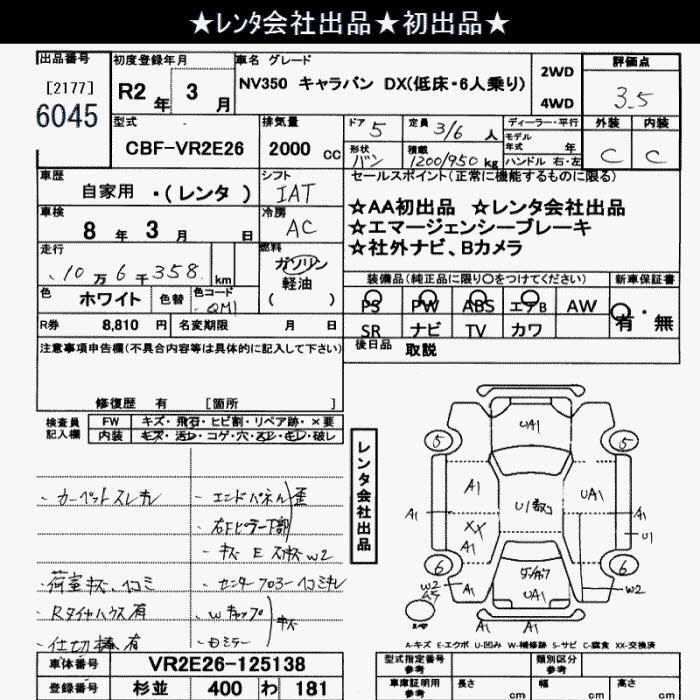 ★レンタ会社出品★初出品★
出品番号 [2177] 6045
初度登録年月 R2年 3月
車名 グレード
NV350 キャラバン DX(低床・6人乗り)
2WD
4WD
評価点 3.5
外装 C 内装 C
型式 CBF-VR2E26
排気量 2000cc
ドア 5 定員 3/6人
形状 バン 積載 1200/950kg
ディーラー・平行
モデル年式 年
ハンドル 右・左
車歴 自家用 ・(レンタ )
シフト IAT
セールスポイント(正常に機能するものに限る)
☆AA初出品 ☆レンタ会社出品
☆エマージェンシーブレーキ
☆社外ナビ、Bカメラ
車検 8年 3月 日
冷房 AC
走行 10万6千358 km
燃料 ガソリン 軽油 ( )
色 ホワイト 色替 色コード QM1
装備品(純正品に限り○をつけてください) 新車保証書
PS PW ABS エアB AW 有・無
SR ナビ TV カワ
R券 8,810円 名変期限 月 日
後日品 取説
注意事項申告欄(不具合内容等は具体的に記入して下さい)
修復歴 有 [箇所
検査員記入欄
FW キズ・飛石・ヒビ割・リペア跡・×要
内装 キズ・汚レ・コゲ・穴・スレ・キレ・破レ
レンタ会社出品
・カーペットスレキレ
・エンドパネル 歪
・右Fピラー下部
・キズ E スサビ W2
・荷室キズ、凹コミ
・センターフロアー凹コミキレ
・Rタイヤハウス有
・Wキャップ キズ
・仕切棒有
・Dミラー
UA1
5 5
A1 UA1
A1 U1 A1
XX
A1 U1
6 6
W2 A1 UA1 W2
A1 A1
A-キズ E-エクボ U-凹み W-補修跡 S-サビ C-腐食 XX-交換済
車体番号 VR2E26-125138
登録番号 杉並 400 わ 181
型式指定番号 参考
類別区分 参考
車庫証明用 参考
長さ cm
幅 cm
高さ cm